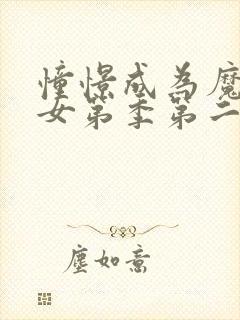 憧憬成为魔
女第季第二
尘如意